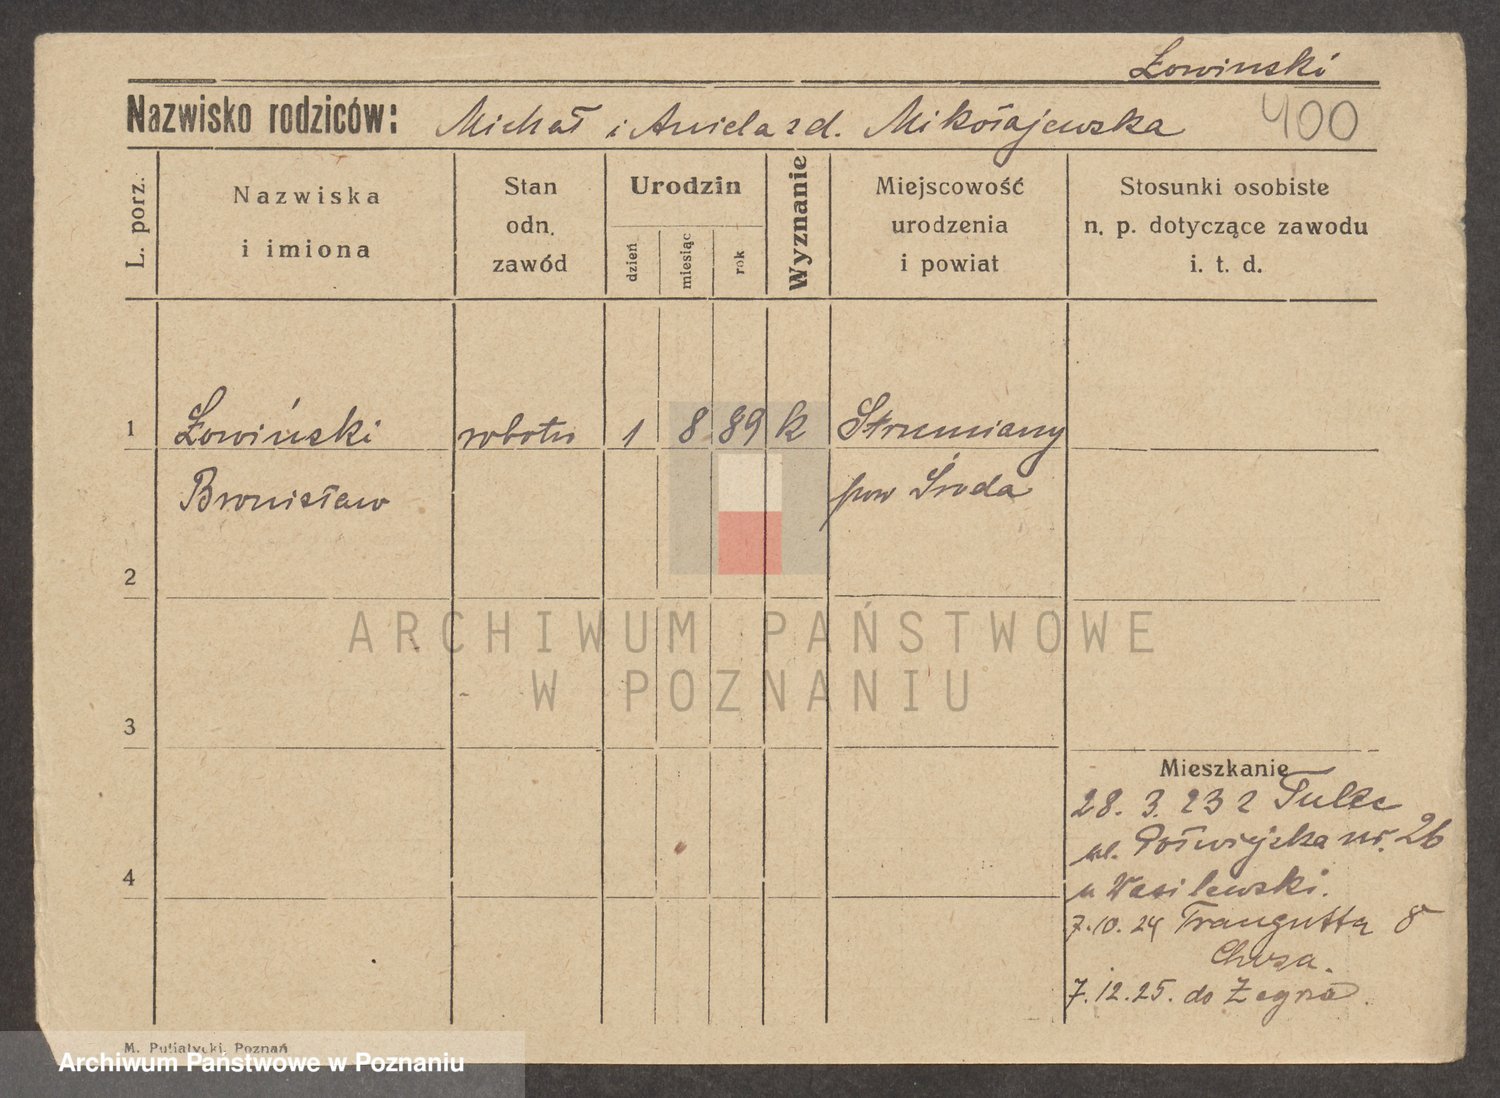 Łowinski
Nazwisko rodziców: Michał i Aniela zd. Mikołajewska 400
L. porz.
Nazwiska
i imiona
Stan
odn.
zawód
Urodzin
dzień
miesiąc
rok
Wyznanie
Miejscowość
urodzenia
i powiat
Stosunki osobiste
n. p. dotyczące zawodu
i. t. d.
1 Łowiński robotn 1 8 89 k Strumiany
Bronisław pow Środa
2
ARCHIWUM PAŃSTWOWE
W POZNANIU
3
Mieszkanie
28. 3. 23 z Tulec
ul. nr. 26
4
u Wasilewski.
7.10.24 Traugutta 8
7.12.25. do Żegrza.
M. Putiatycki, Poznań
Archiwum Państwowe w Poznaniu